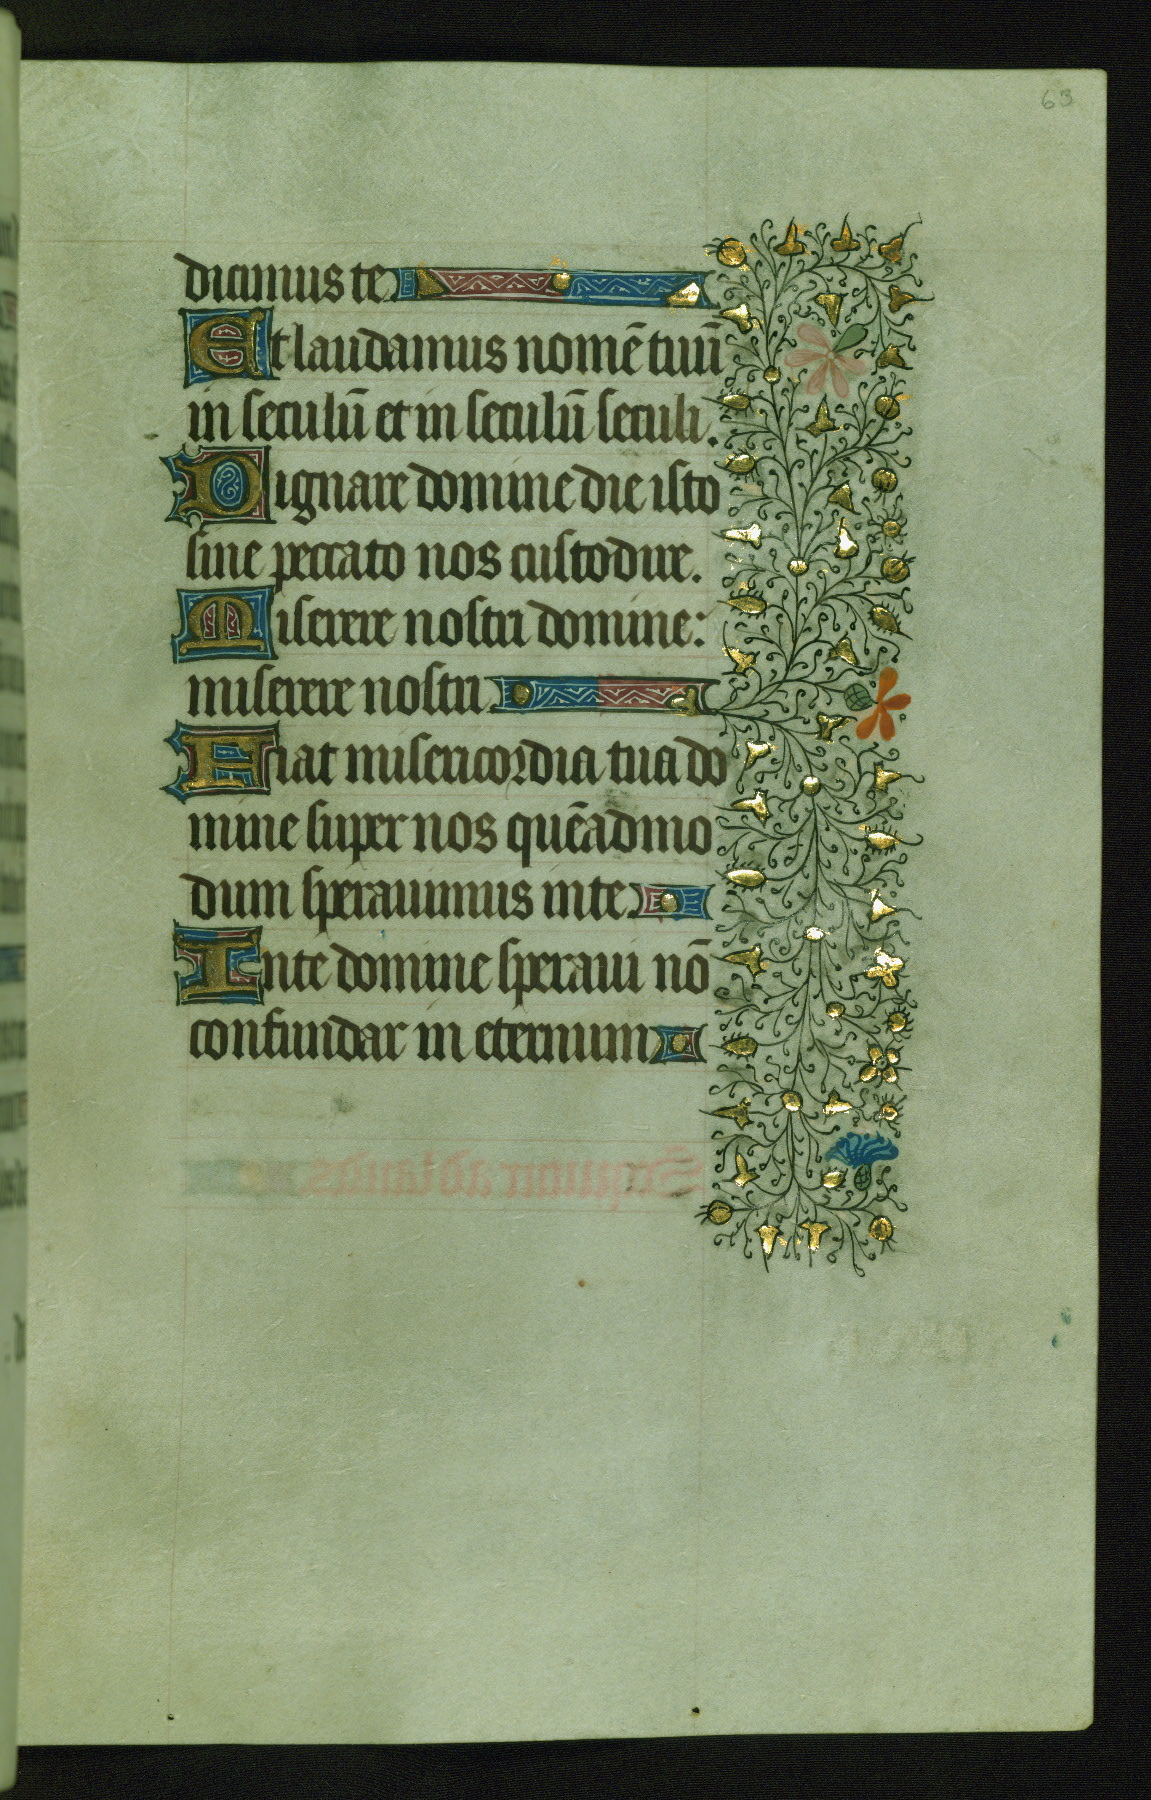 63
dicimus te
Et laudamus nomē tuū
in seculū et in seculū seculi.
Dignare domine die isto
sine peccato nos custodire.
Miserere nostri domine:
miserere nostri.
Fiat misericordia tua do
mine super nos quēadmo
dum sperauimus in te.
In te domine speraui nō
confundar in eternum
Sequitur ad laudes